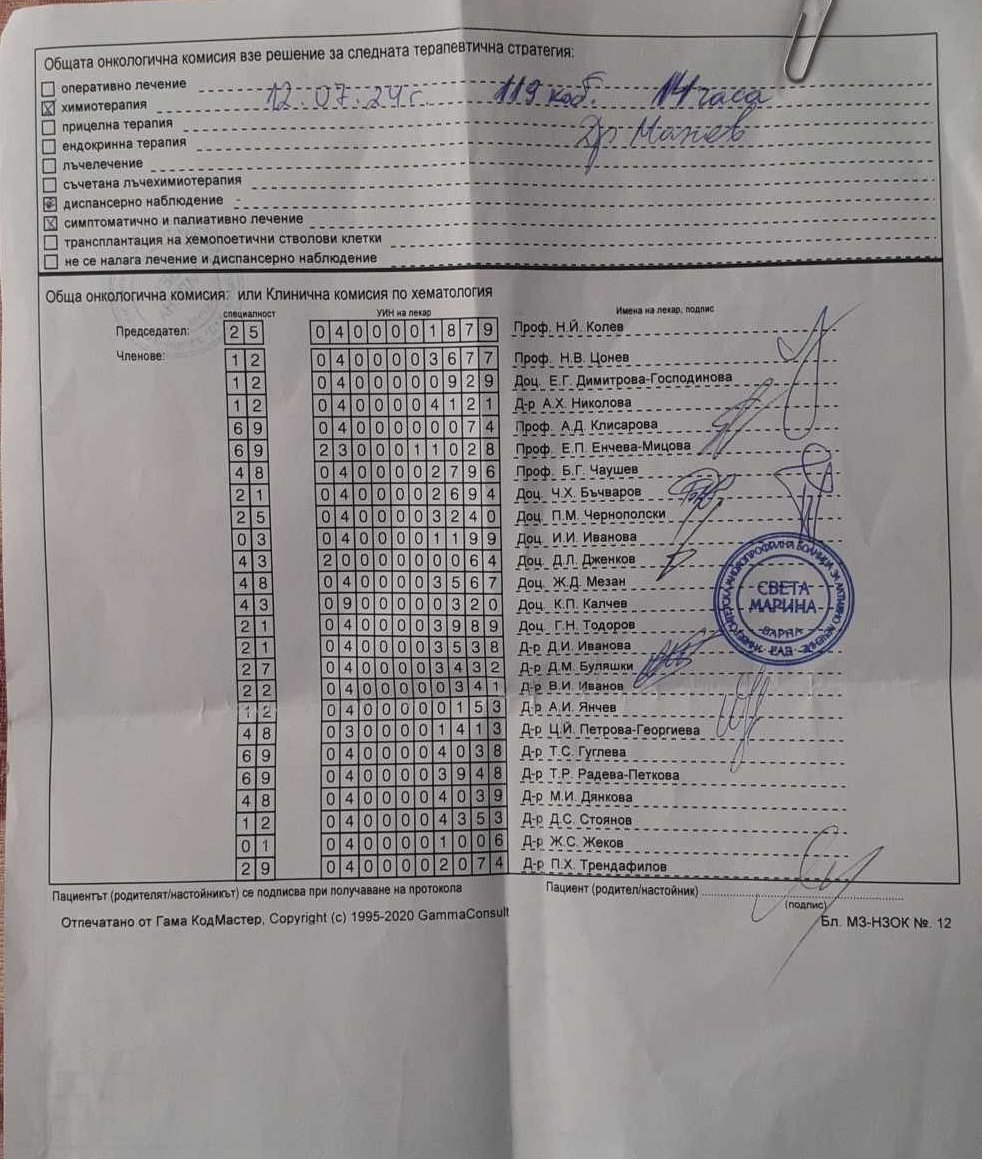 Общата онкологична комисия взе решение за следната терапевтична стратегия:
оперативно лечение
химиотерапия 12.07.24г. 119 каб. 14 часа
прицелна терапия Др Манев
ендокринна терапия
лъчелечение
съчетана лъчехимиотерапия
диспансерно наблюдение
симптоматично и палиативно лечение
трансплантация на хемопоетични стволови клетки
не се налага лечение и диспансерно наблюдение
Обща онкологична комисия: или Клинична комисия по хематология
специалност УИН на лекар Имена на лекар, подпис
Председател: 25 0400001879 Проф. Н.Й. Колев
Членове: 12 0400003677 Проф. Н.В. Цонев
12 0400000929 Доц. Е.Г. Димитрова-Господинова
12 0400004121 Д-р А.Х. Николова
69 0400000074 Проф. А.Д. Клисарова
69 2300011028 Проф. Е.П. Енчева-Мицова
48 0400002796 Проф. Б.Г. Чаушев
21 0400002694 Доц. Ч.Х. Бъчваров
25 0400003240 Доц. П.М. Чернополски
03 0400001199 Доц. И.И. Иванова
43 2000000064 Доц. Д.Л. Дженков
48 0400003567 Доц. Ж.Д. Мезан
43 0900000320 Доц. К.П. Калчев
21 0400003989 Доц. Г.Н. Тодоров
21 0400003538 Д-р Д.И. Иванова
27 0400003432 Д-р Д.М. Буляшки
22 0400000341 Д-р В.И. Иванов
12 0400000153 Д-р А.И. Янчев
48 0300001413 Д-р Ц.Й. Петрова-Георгиева
69 0400004038 Д-р Т.С. Гуглева
69 0400003948 Д-р Т.Р. Радева-Петкова
48 0400004039 Д-р М.И. Дянкова
12 0400004353 Д-р Д.С. Стоянов
01 0400001006 Д-р Ж.С. Жеков
29 0400002074 Д-р П.Х. Трендафилов
СВЕТА
МАРИНА
ВАРНА
Пациентът (родителят/настойникът) се подписва при получаване на протокола Пациент (родител/настойник)
(подпис)
Отпечатано от Гама КодМастер, Copyright (c) 1995-2020 GammaConsult Бл. МЗ-НЗОК №. 12